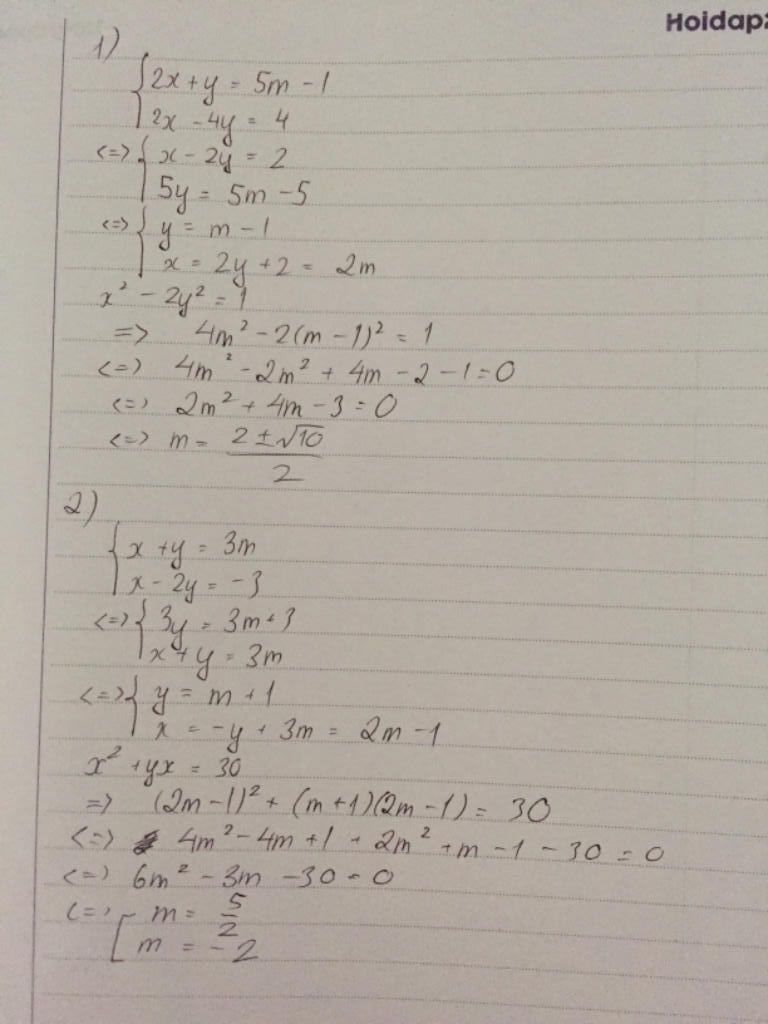 Hoidap2
1)
{2x + y = 5m - 1
2x - 4y = 4
<=> {x - 2y = 2
5y = 5m - 5
<=> {y = m - 1
x = 2y + 2 = 2m
x² - 2y² = 1
=> 4m² - 2(m - 1)² = 1
<=> 4m² - 2m² + 4m - 2 - 1 = 0
<=> 2m² + 4m - 3 = 0
<=> m = (2 ± √10)/2
2)
{x + y = 3m
x - 2y = -3
<=> {3y = 3m + 3
x + y = 3m
<=> {y = m + 1
x = -y + 3m = 2m - 1
x² + yx = 30
=> (2m - 1)² + (m + 1)(2m - 1) = 30
<=> 4m² - 4m + 1 + 2m² + m - 1 - 30 = 0
<=> 6m² - 3m - 30 = 0
<=> [m = 5/2
m = -2